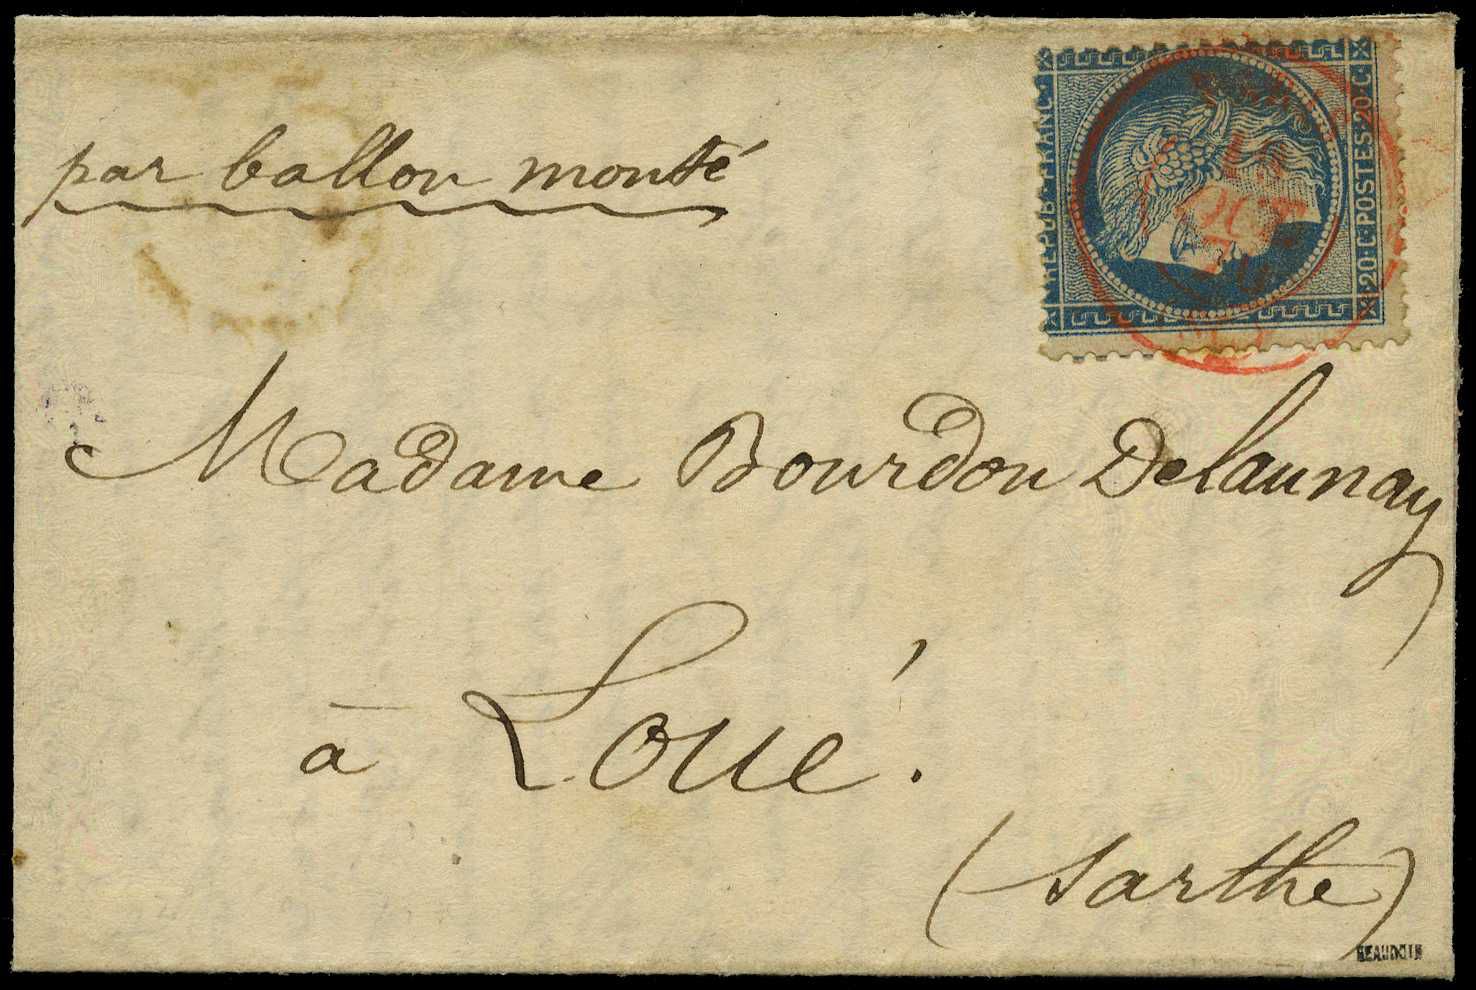 par ballon monté
REPUB·FRANC·
20·C·POSTES·20·C·
OCT
Madame Bourdon Delaunay
à Loué.
(Sarthe)
BEAUDOIN